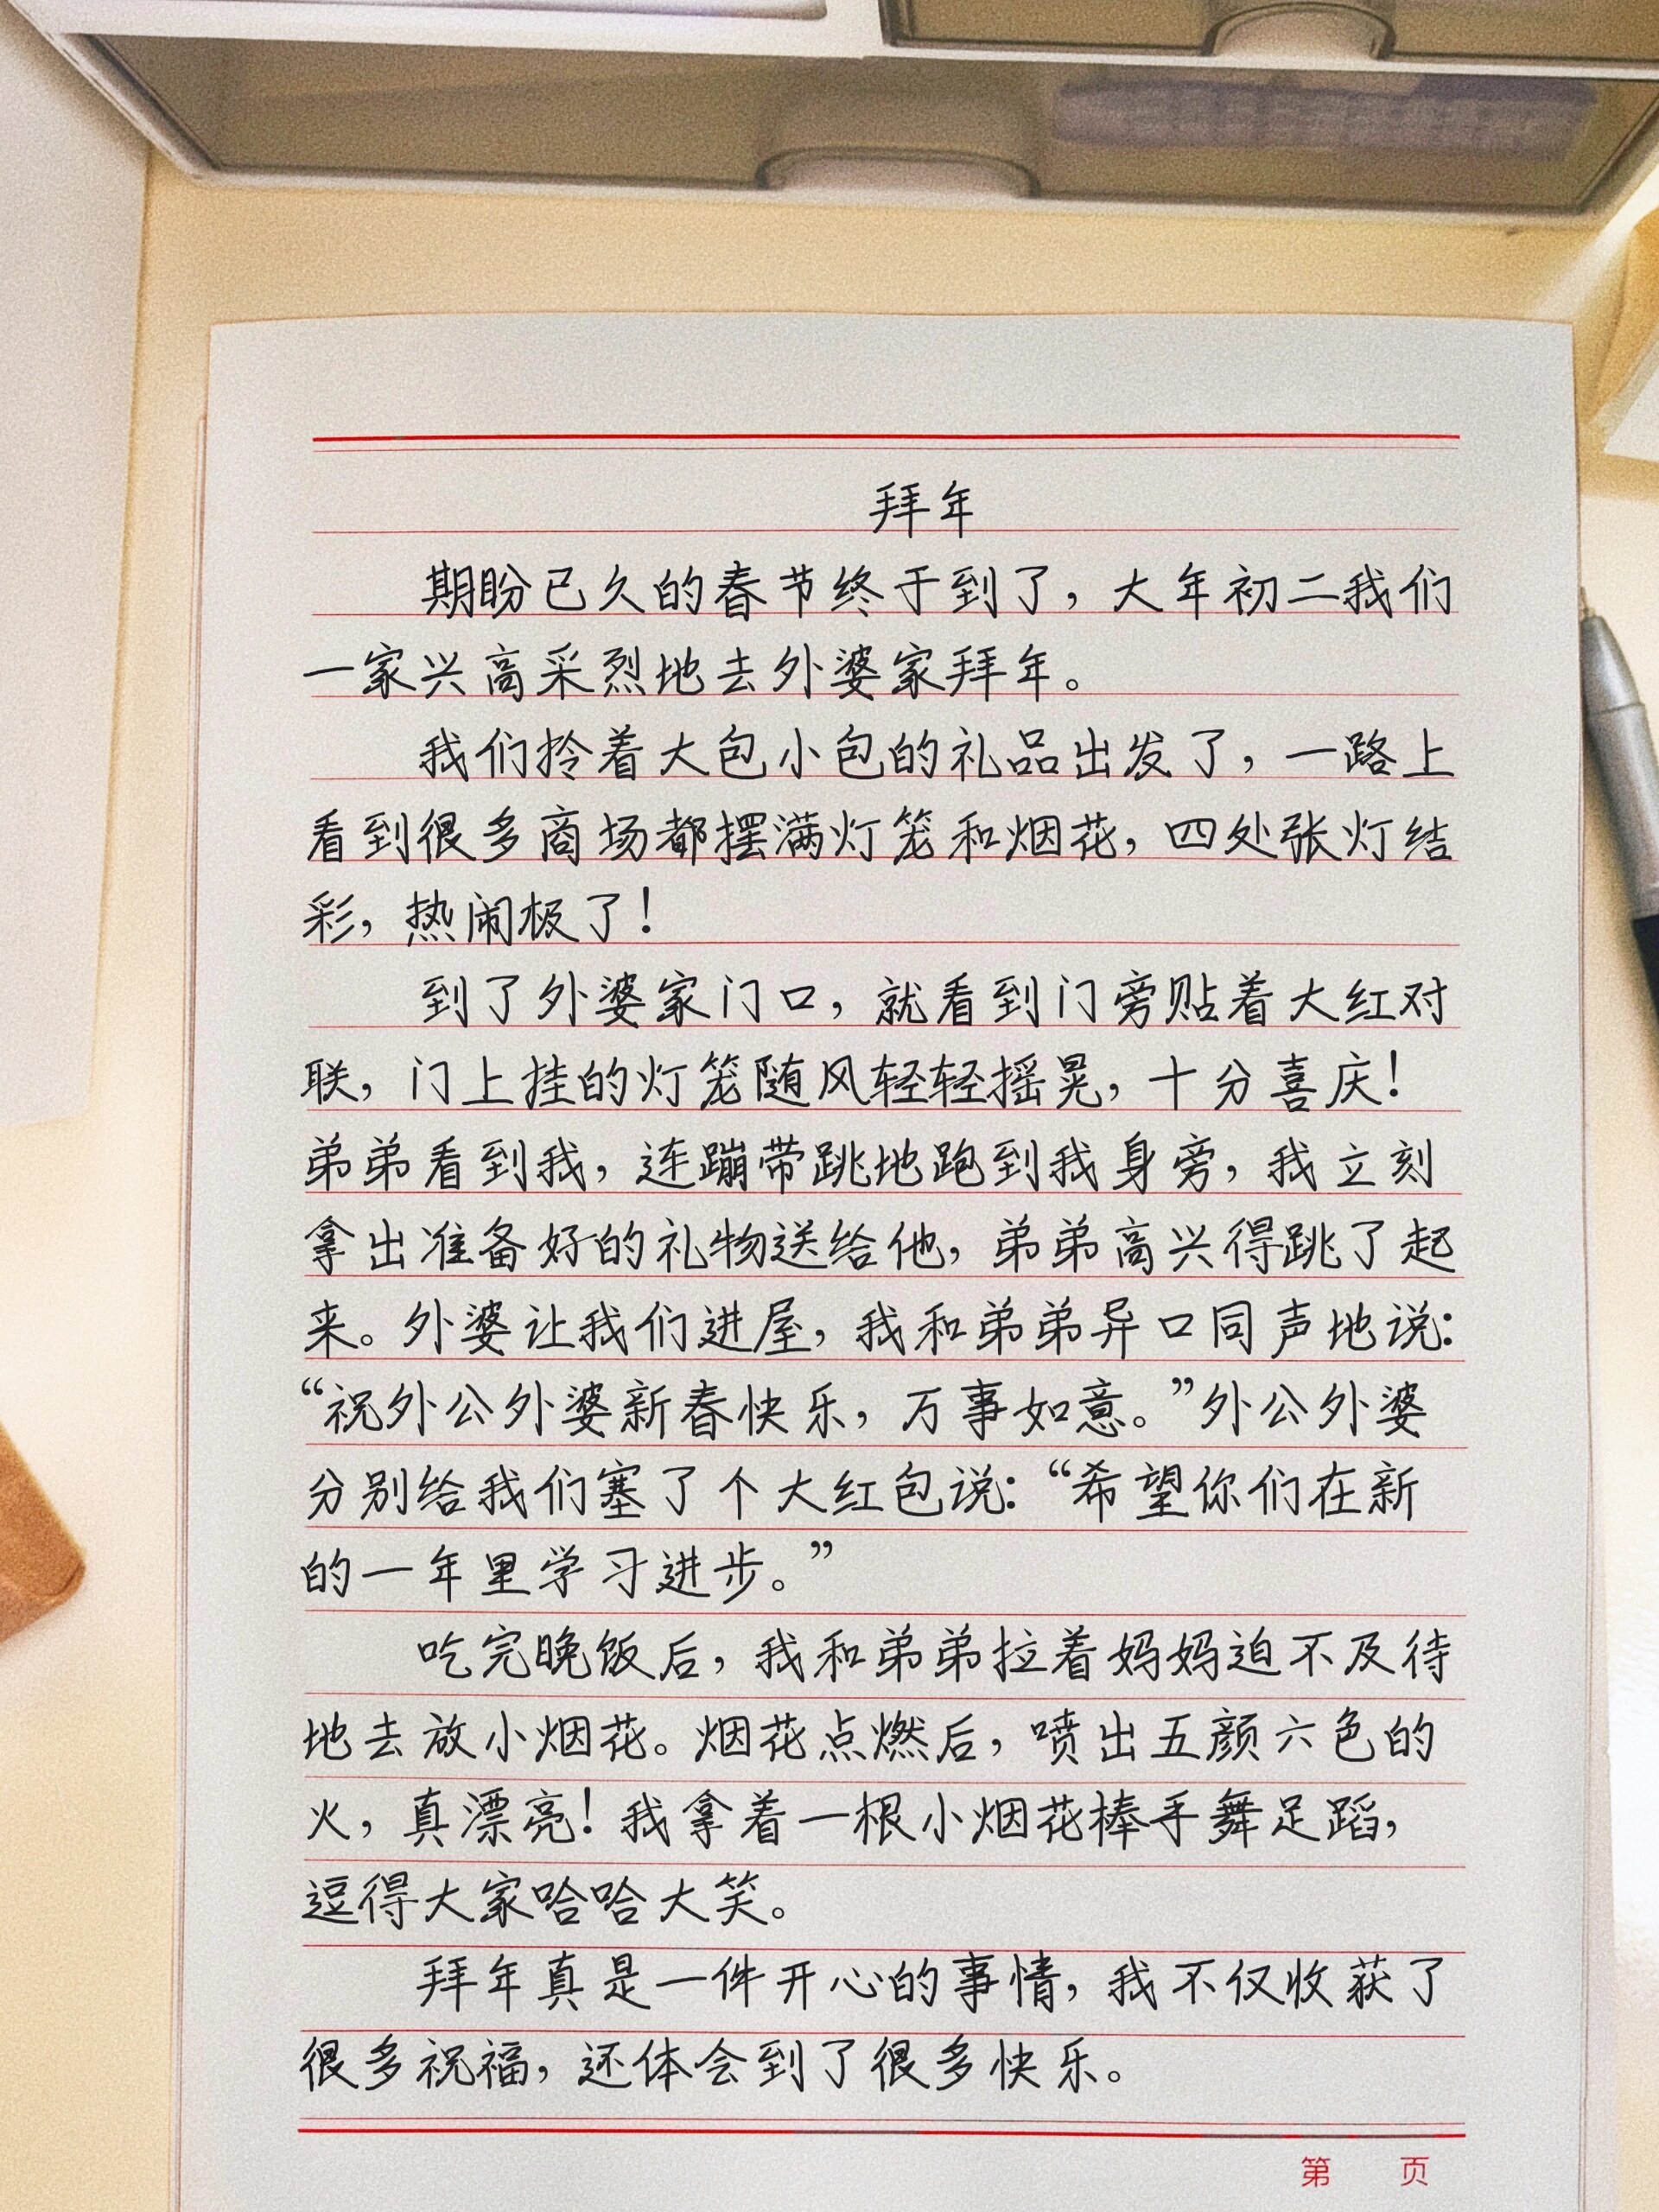 拜年
期盼已久的春节终于到了，大年初二我们
一家兴高采烈地去外婆家拜年。
我们拎着大包小包的礼品出发了，一路上
看到很多商场都摆满灯笼和烟花，四处张灯结
彩，热闹极了！
到了外婆家门口，就看到门旁贴着大红对
联，门上挂的灯笼随风轻轻摇晃，十分喜庆！
弟弟看到我，连蹦带跳地跑到我身旁，我立刻
拿出准备好的礼物送给他，弟弟高兴得跳了起
来。外婆让我们进屋，我和弟弟异口同声地说：
“祝外公外婆新春快乐，万事如意。”外公外婆
分别给我们塞了个大红包说：“希望你们在新
的一年里学习进步。”
吃完晚饭后，我和弟弟拉着妈妈迫不及待
地去放小烟花。烟花点燃后，喷出五颜六色的
火，真漂亮！我拿着一根小烟花棒手舞足蹈，
逗得大家哈哈大笑。
拜年真是一件开心的事情，我不仅收获了
很多祝福，还体会到了很多快乐。
第 页